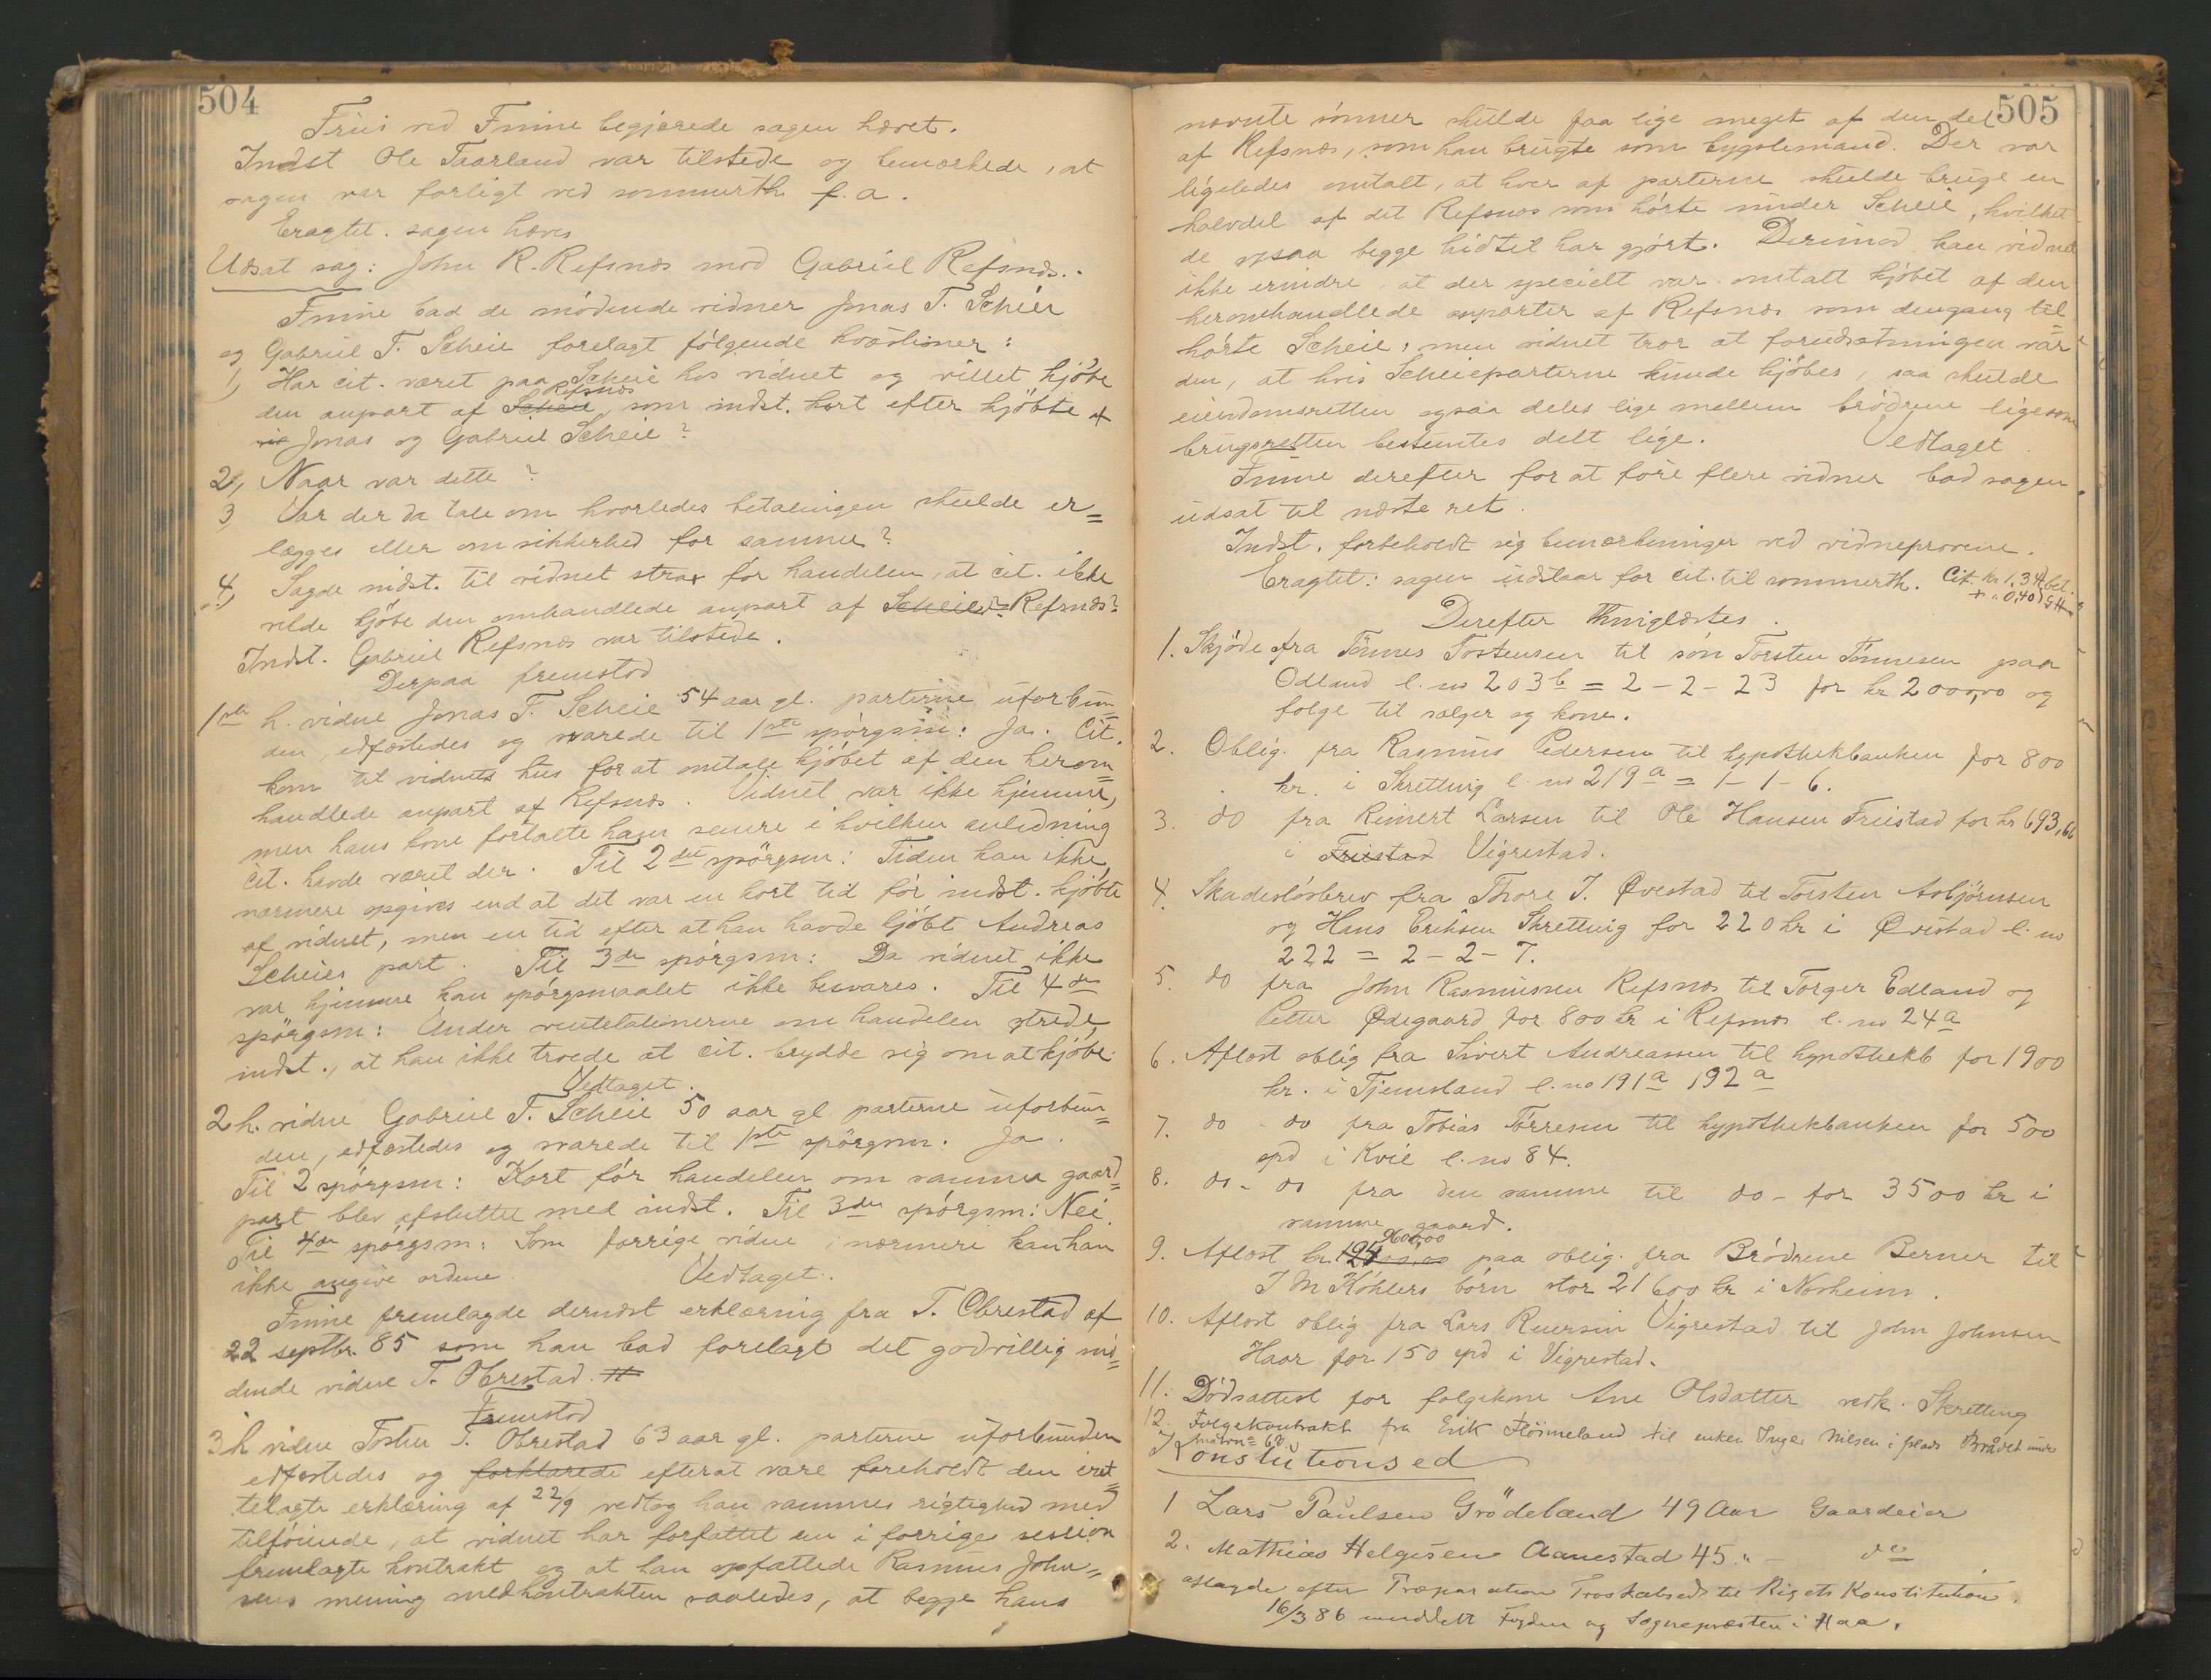 504
Friis ved Fninne begjærede sagen hævet.
Indst Ole Taarland var tilstede og bemærkede, at
sagen var forligt ved sommerth. f. a.
Eragtet. sagen hæves
Udsat sag: John R. Refsnæs mod Gabriel Refsnæs.
bad de mödende vidner Jonas T. Scheie
og Gabriel T. Scheie forelagt fölgende kvæstioner:
1, Har cit. været paa Scheie hos vidnet og villet kjöbe
Refsnæs
den anpart af Scheie, som indst. kort efter kjöbte af
Jonas og Gabriel Scheie?
2, Naar var dette?
3, Var der da tale om hvorledes betalingen skulde er=
lægges eller om sikkerhed for samme?
4, Sagde indst. til vidnet strax för handelen, at cit. ikke
vilde kjöbe den omhandlede anpart af Scheie? Refsnæs?
Indst. Gabriel Refsnæs var tilstede.
Derpaa fremstod
1ste h. vidne Jonas T. Scheie 54 aar gl. parterne uforbun=
den, edfæstedes og svarede til 1ste spörgsm: Ja. Cit.
kom til vidnets hus for at omtale kjöbet af den herom=
handlede anpart af Refsnæs. Vidnet var ikke hjemme,
men hans kone fortalte ham senere i hvilken anledning
cit. havde været der. Til 2det spörgsm: Tiden kan ikke
nærmere opgives end at det var en kort tid för indst. kjöbte
af vidnet, men en tid efter at han havde kjöbt Andreas
Scheies part. Til 3de spörgsm: Da vidnet ikke
var hjemme kan spörgsmaalet ikke besvares. Til 4de
spörgsm: Under ventelationerne om handelen ytrede
indst., at han ikke troede at cit. brydde sig om at kjöbe.
Vedtaget.
2 h. vidne Gabriel T. Scheie 50 aar gl parterne uforbun=
den, edfæstedes og svarede til 1ste spörgsm. Ja.
Til 2 spörgsm: Kort för handelen om samme gaard=
part blev afsluttet med indst. Til 3de spörgsm: Nei.
Til 4de spörgsm: Som forrige vidne, nærmere kan han
ikke angive ordene. Vedtaget.
fremlagde dernæst erklæring fra T. Obrestad af
22 septbr. 85 som han bad forelagt det godvillig mö=
dende vidne T. Obrestad.
Fremstod
3 h vidne Tosten T. Obrestad 63 aar gl. parterne uforbunden
edfæstedes og forklarede efterat være foreholdt den iret=
telagte erklæring af 22/9 vedtog han sammes rigtighed med
tilföiende, at vidnet har forfattet en i forrige session
fremlagte kontrakt og at han opfattede Rasmus John=
sens mening med kontrakten saaledes, at begge hans
505
nævnte sönner skulde faa lige meget af den del
af Refsnæs, som han brugte som bygslemand. Der var
ligeledes omtalt, at hver af parterne skulde bruge en
halvdel af det Refsnæs som hörte under Scheie, hvilket
de ogsaa begge hidtil har gjort. Derimod kan vidnet
ikke erindre, at der specielt var omtalt kjöbet af den
heromhandlede anparter af Refsnæs som dengang til
hörte Scheie, men vidnet tror at forudsætningen var
den, at hvis Scheieparterne kunde kjöbes, saa skulde
eiendomsretten ogsaa deles lige mellem brödrene ligesom
brugsretten bestemtes delt lige. Vedtaget.
derefter for at före flere vidner bad sagen
udsat til næste ret.
Indst. forbeholdt sig bemærkninger ved vidneprovene.
Eragtet: sagen udstaar for cit. til sommerth. Cit. kr 1,34 bet.
+ " 0,40
Derefter thinglæstes.
1. Skjöde fra Tönnes Tostensen til sön Torsten Tönnesen paa
Odland l. no 203b = 2-2-23 for kr 2000,00 og
folge til sælger og kone.
2. Oblig. fra Rasmus Pedersen til hypothekbanken for 800
kr. i Skretting l. no 219a = 1-1-6.
3. do fra Reinert Larsen til Ole Hansen Friestad for kr 693,66
i Friestad Vigrestad.
4. Skadeslösbrev fra Thore J. Øvestad til Torsten Asbjörnsen
og Hans Eriksen Skretting for 220 kr i Øvestad l. no
222 = 2-2-7.
5. do fra John Rasmussen Refsnæs til Torger Edland og
Petter Ødegaard for 800 kr i Refsnæs l. no 24a
6. Aflöst oblig fra Sivert Andreassen til hypothekb for 1900
kr. i Tjemsland l. no 191a 192a
7. do - do fra Tobias Törresen til hypothekbanken for 500
spd i Kvie l. no 84.
8. do - do fra den samme til do - for 3500 kr i
samme gaard.
9. Aflöst kr. 19 600,00 paa oblig. fra Brödrene Berner til
J M Köhlers börn stor 21600 kr i Nærheim.
10. Aflöst oblig fra Lars Reiersen Vigrestad til John Johnsen
Haar for 150 spd i Vigrestad.
11. Dödsattest for folgekone Ane Olsdatter vedk. Skretting
12. Folgekontrakt fra Erik til enken Inger Nilsen i plads Braadet under
Konstutionsed
1 Lars Paulsen Grödeland 49 Aar Gaardeier
2. Mathias Helgesen Aanestad 45 " - do
aflagde efter Præparation Troskabsed til Rigets Konstitution.
16/3 86 meddelt Fogden og Sognepræsten i Haa.